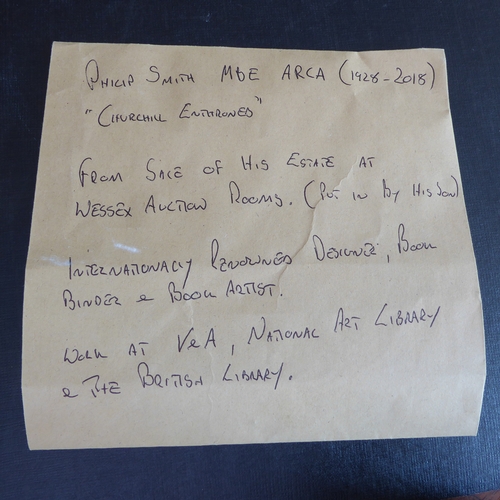 Philip Smith MBE ARCA (1928-2018)
"Churchill Enthroned"
From Sale of His Estate at
Wessex Auction Rooms. (Put in By His Son)
Internationally Renowned Designer, Book
Binder & Book Artist.
Work at V&A, National Art Library
& The British Library.